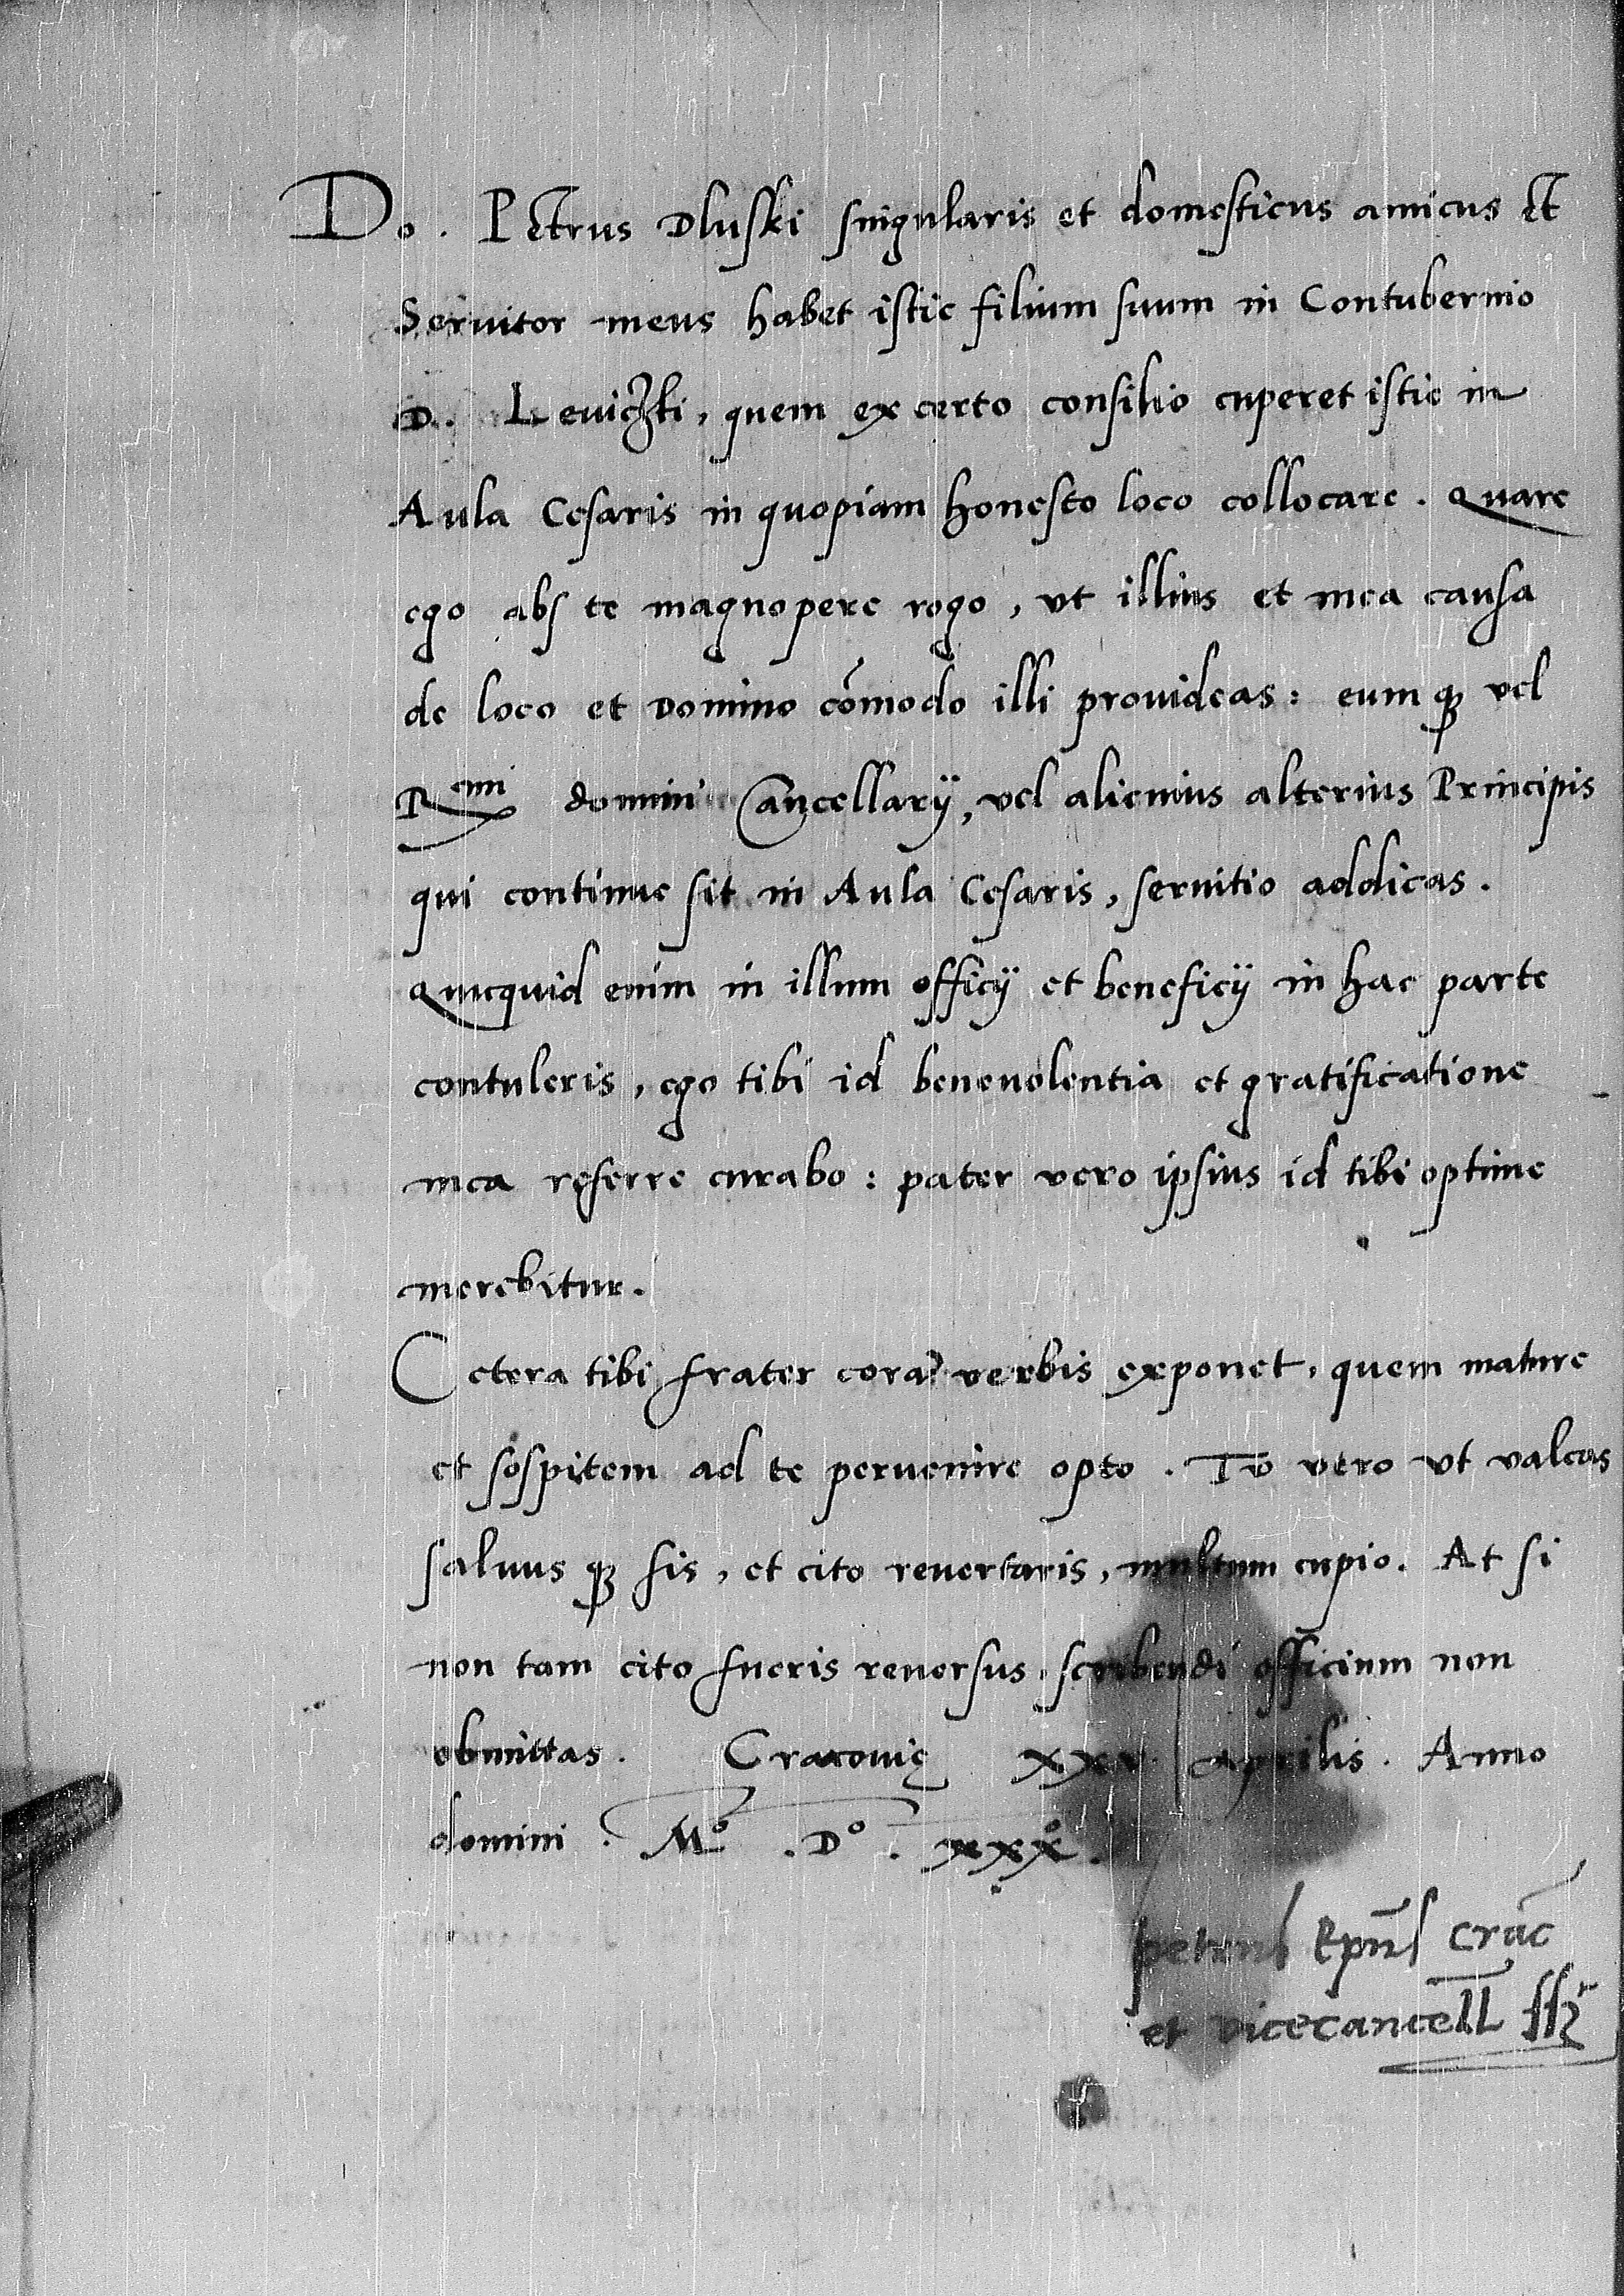 Do. Petrus Dluski singularis et domesticus amicus et
Seruitor meus habet istic filium suum in Contubernio
D. Leuiczki, quem ex certo consilio cuperet istic in
Aula Cesaris in quopiam honesto loco collocare. Quare
ego abs te magnopere rogo, vt illius et mea causa
de loco et Domino cōmodo illi prouideas: eum q₃ vel
Rmi domini Cancellarÿ, vel alicuius alterius Principis
qui continue sit in Aula Cesaris, seruitio addicas.
Quicquid enim in illum officÿ et beneficÿ in hac parte
contuleris, ego tibi id beneuolentia et gratificatione
mea referre curabo: pater vero ipsius id tibi optime
merebitur.
Cetera tibi frater corā verbis exponet, quem mature
et sospitem ad te peruenire opto. Tu vero vt valeas
saluus q₃ sis, et cito reuertaris, multum cupio. At si
non tam cito fueris reuersus, scribendi officium non
obmittas. Cracouię XXV. Aprilis. Anno
domini. Mº. Dº. xxxº.
petrus Ep̄us Crac̄
et vicecancell̄